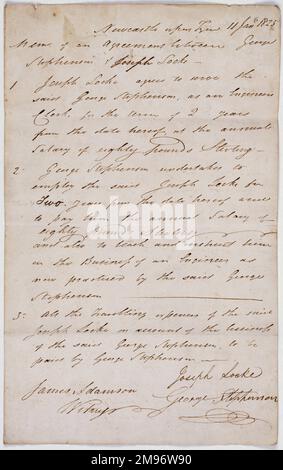 Newcastle upon Tyne 1825
Mem of an Agreement between George
Stephenson & Joseph Locke -
1 Joseph Locke agrees to serve the
said George Stephenson, as an Engineer
Clerk, for the term of 2 years
from the date hereof at the annual
Salary of eighty pounds Sterling -
2. George Stephenson undertakes to
employ the said Joseph Locke for
Two years from the date hereof and
to pay him the annual Salary of
eighty
and also to teach and instruct him
in the Business of an Engineer as
now practised by the said George
Stephenson
3. All the travelling expences of the said
Joseph Locke on account of the business
of the said George Stephenson, to be
paid by George Stephenson -
Joseph Locke
James Adamson
George Stephenson
alamy
Image ID: 2M96W90
www.alamy.com